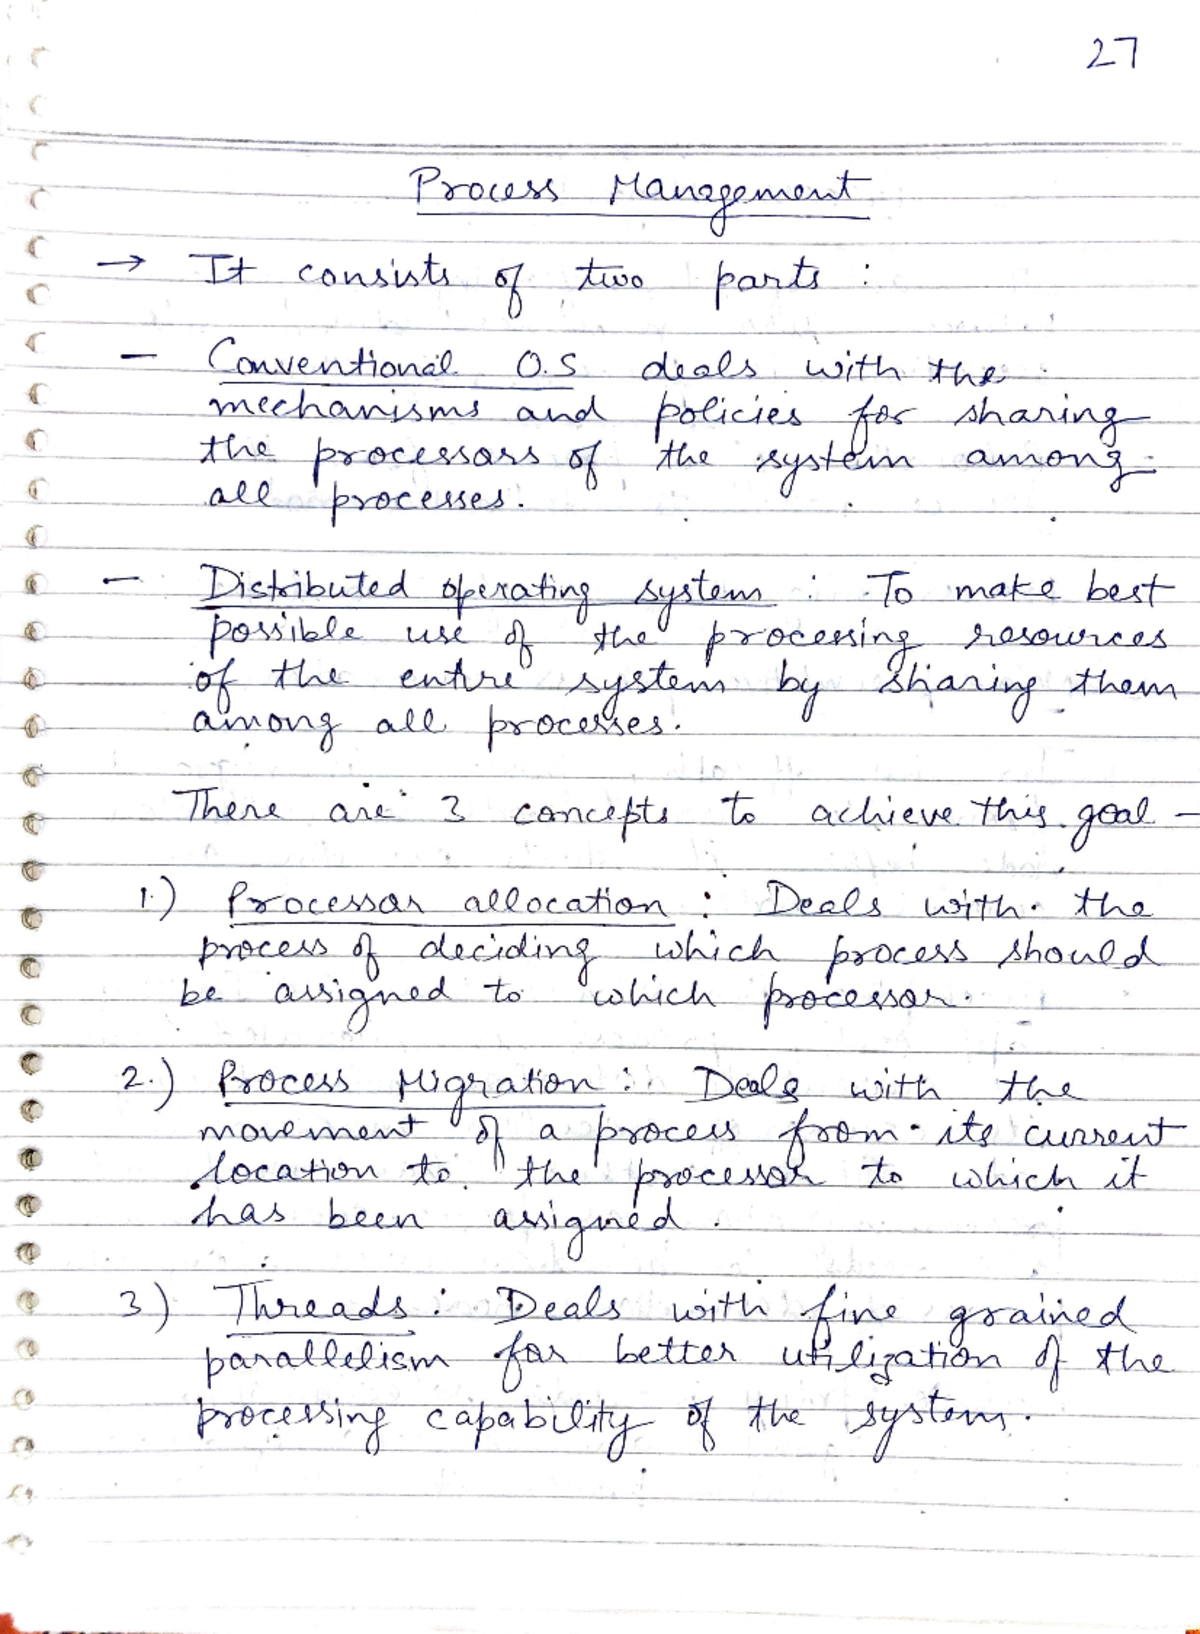 27
Process Management
→ It consists of two parts :
- Conventional O.S deals with the
mechanisms and policies for sharing
the processors of the system among
all processes.
- Distributed operating system : To make best
possible use of the processing resources
of the entire system by sharing them
among all processes.
There are 3 concepts to achieve this goal -
1.) Processor allocation : Deals with the
process of deciding which process should
be assigned to which processor.
2.) Process Migration : Deals with the
movement of a process from its current
location to the processor to which it
has been assigned.
3) Threads : Deals with fine grained
parallelism for better utilization of the
processing capability of the system.